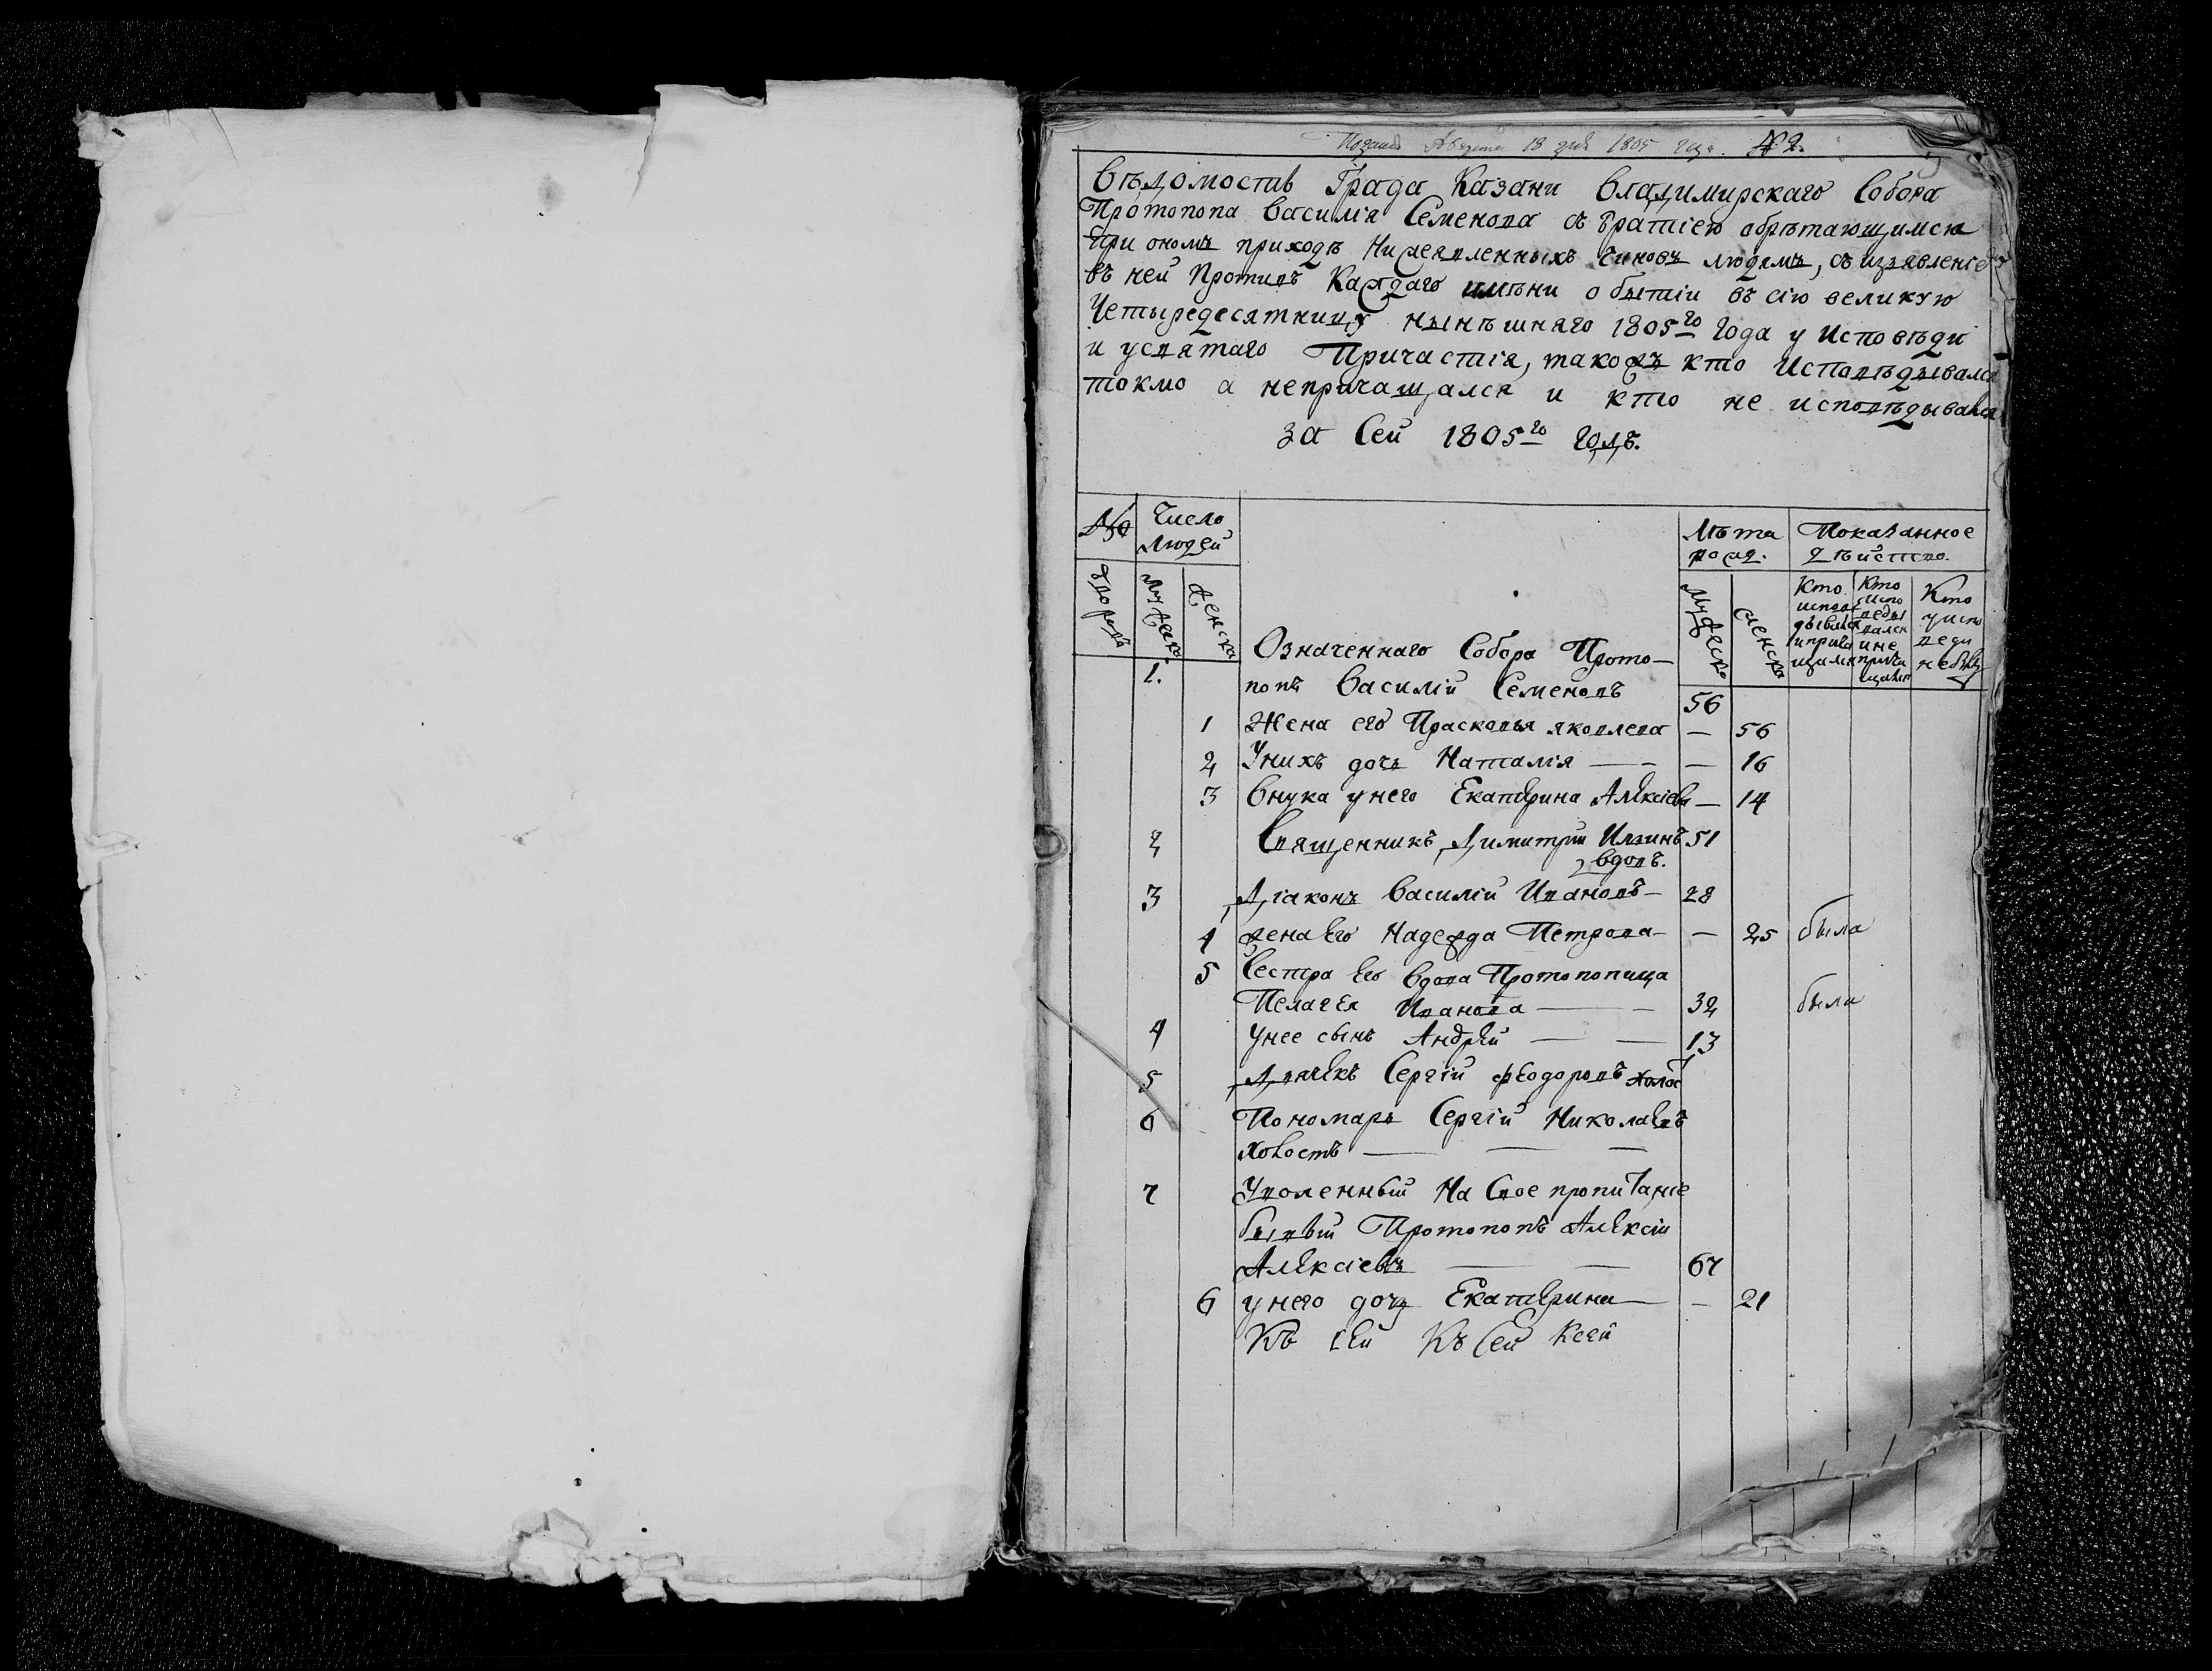 Августа 18 дня 1805 года. № 2.
Вѣдомость Града Казани Владимирскаго Собора
Протопопа Василія Семенова съ братіею обрѣтающимся
при ономъ приходѣ Нижеявленныхъ чиновъ людемъ, съ изъявленіемъ
въ ней противъ Каждаго имѣни о бытіи въ сію великую
Четыредесятницу нынѣшняго 1805го года у Исповѣди
и усвятаго Причастія, такожъ кто Исповѣдывался
токмо а непричащался и кто не исповѣдывался
за Сей 1805го годъ.
№ Число людей Лѣта рожд. Показанное дѣйство.
дворовъ мужеска женска мужеска женска Кто исповѣдывался и причащался Кто исповедывался и не причащался Кто у исповеди небылъ
1. Означеннаго Собора Прото-
попъ Василій Семеновъ 56
1 Жена его Прасковья яковлева — 56
2 Унихъ дочь Наталія — — — 16
3 Внука унего Екатерина Алексіева — 14
2 Священникъ Димитрій Ильинъ 51
вдовъ.
3 Діаконъ Василій Ивановъ — 28
4 жена Его Надежда Петрова — — 25 была
5 Сестра Его вдова Протопопица
Пелагея Иванова — — 32 была
4 Унее сынъ Андрей — — 13
5 Дьячекъ Сергій Феодоровъ холос
6 Пономарь Сергій Николаевъ
холостъ — — —
7 Уволенный На Свое пропитаніе
бывый Протопопъ Алексій
Алексіевъ — — 67
6 унего дочь Екатерина — — 21
Къ сей Къ Сей